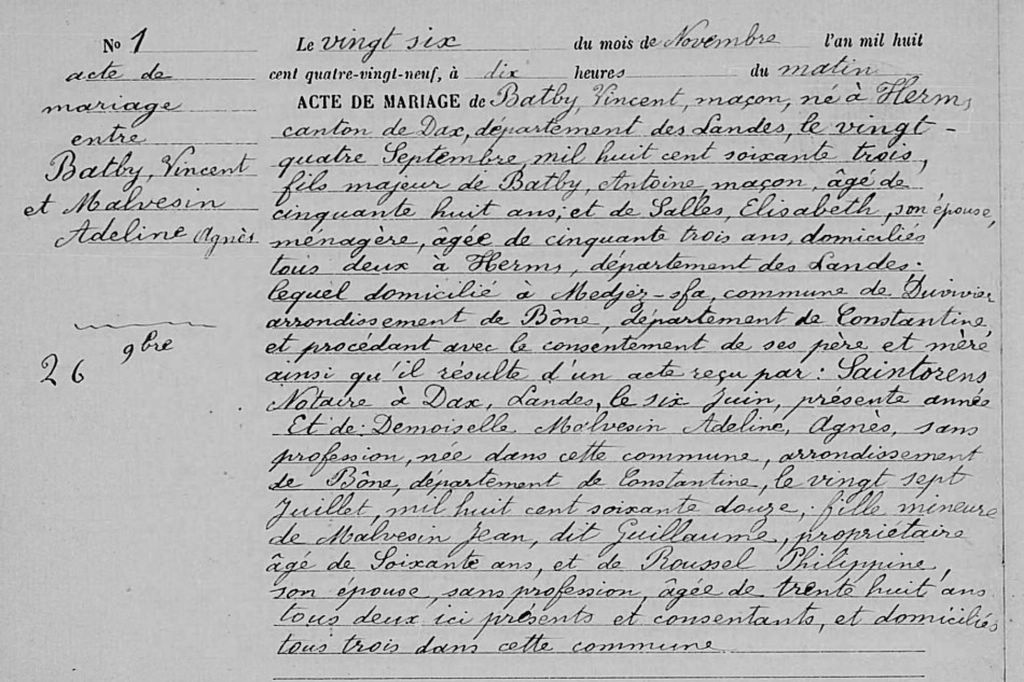 No 1
acte de
mariage
entre
Batby, Vincent
et Malvesin
Adeline Agnès
26 9bre
Le vingt six du mois de Novembre l'an mil huit
cent quatre-vingt-neuf, à dix heures du matin
ACTE DE MARIAGE de Batby, Vincent, maçon, né à Herm,
canton de Dax, département des Landes, le vingt-
quatre Septembre mil huit cent soixante trois,
fils majeur de Batby, Antoine, maçon, âgé de
cinquante huit ans, et de Salles, Elisabeth, son épouse,
ménagère, âgée de cinquante trois ans, domiciliés
tous deux à Herm, département des Landes;
lequel domicilié à Medjez-sfa, commune de Duvivier
arrondissement de Bône, département de Constantine,
et procédant avec le consentement de ses père et mère
ainsi qu'il résulte d'un acte reçu par: Saintorens
Notaire à Dax, Landes, le six Juin, présente année
Et de: Demoiselle Malvesin Adeline, Agnès, sans
profession, née dans cette commune, arrondissement
de Bône, département de Constantine, le vingt sept
Juillet, mil huit cent soixante douze; fille mineure
de Malvesin Jean, dit Guillaume, propriétaire
âgé de Soixante ans, et de Roussel Philippine,
son épouse, sans profession, âgée de trente huit ans
tous deux ici présents et consentants, et domiciliés
tous trois dans cette commune